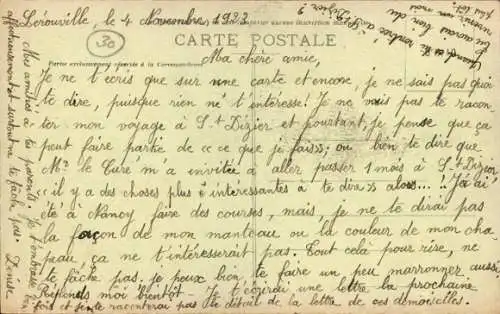 Lérouville, le 4 Novembre, 1923
30
CARTE POSTALE
Partie exclusivement réservée à la Correspondance.
Ma chère amie,
Je ne t'écris que sur une carte et encore, je ne sais pas quoi
te dire, puisque rien ne t'intéresse! Je ne vais pas te racon
ter mon voyage à St Dizier et pourtant, je pense que ça
peut faire partie de "ce que je fais"; ou bien te dire que
Mr le Curé m'a invitée à aller passer 1 mois à St Dizier
"il y a des choses plus intéressantes à te dire" alors... J'ai
été à Nancy faire des courses, mais, je ne te dirai pas
la façon de mon manteau ou la couleur de mon cha
peau, ça ne t'intéresserait pas. Tout cela pour rire, ne
te fâche pas. je peux bien te faire un peu marronner aussi
Réponds moi bientôt - Je t'écrirai une lettre la prochaine
fois et te raconterai pas le détail de la lettre de ces demoiselles.
Mes amitiés à tes parents. Je t'embrasse bien
affectueusement surtout ne te fâche pas. Denise